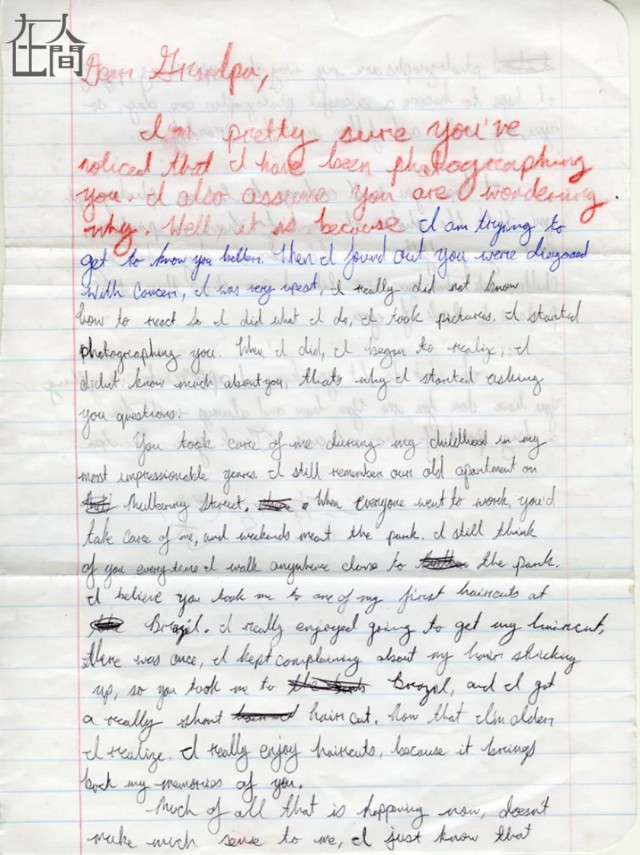 在人間
Dear Grandpa,
I'm pretty sure you've
noticed that I have been photographing
you. I also assume you are wondering
why. Well it is because I am trying to
get to know you better. When I found out you were diagosed
with cancer, I was very upset, I really did not know
how to react so I did what I do, I took pictures. I started
photographing you. When I did, I began to realize, I
didnt know much about you, thats why I started asking
you questions.
You took care of me during my childhood in my
most impressionable years. I still remember our old apartment on
Mulberry Street. When everyone went to work, you'd
take care of me, and weekends meant the park. I still think
of you everytime I walk anywhere close to the park.
I believe you took me to one of my first haircuts at
Brazil. I really enjoyed going to get my haircut,
there was once, I kept complaining about my hair sticking
up, so you took me to Brazil, and I got
a really short hair cut. Now that I'm older
I realize. I really enjoy haircuts, because it brings
back my memories of you.
Much of all that is happening now, doesn't
make much sense to me, I just know that